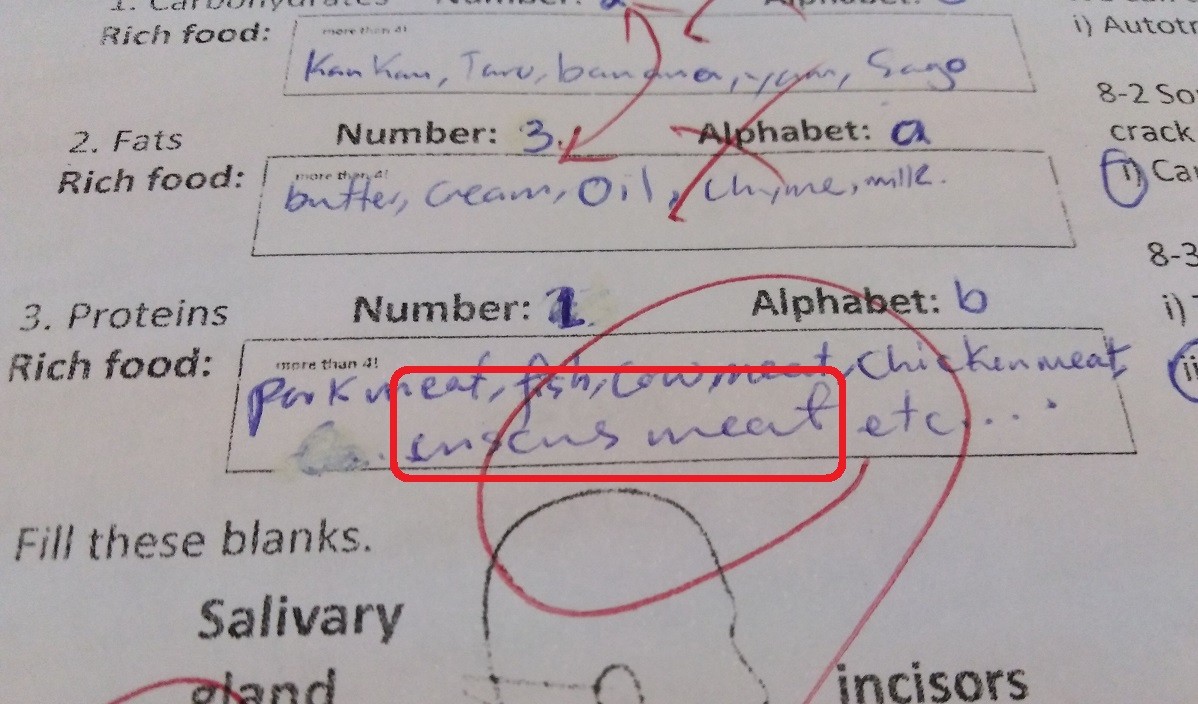 1. Carbohydrates Number: Alphabet:
Rich food: more than 4!
Kau Kau, Taro, banana, yam, Sago
2. Fats Number: 3 Alphabet: a
Rich food: more than 4!
butter, Cream, Oil, Chyme, milk.
3. Proteins Number: 1 Alphabet: b
Rich food: more than 4!
pork meat, fish, Cow meat, Chicken meat,
meat etc...
Fill these blanks.
Salivary
gland
incisors
i) Autotr
8-2 So
crack
i) Ca
8-3
i)
ii